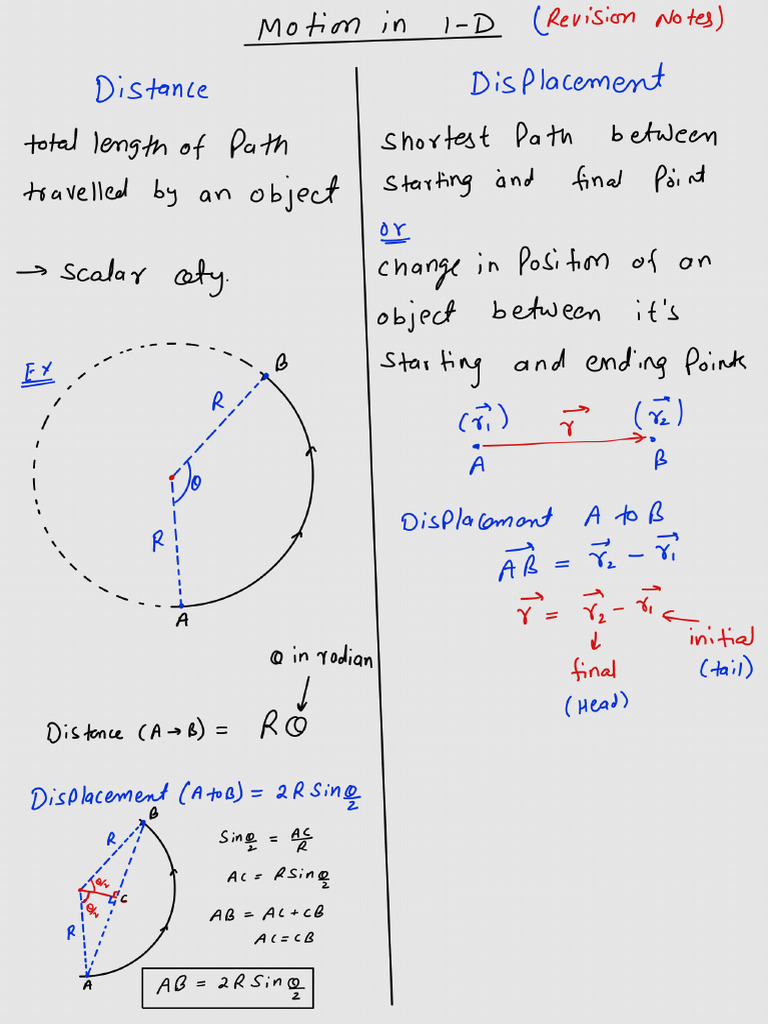 Motion in 1-D (Revision Notes)
Distance
total length of Path
travelled by an object
→ Scalar qty.
Ex
B
R
θ
R
A
θ in radian
Distance (A→B) = Rθ
Displacement (A to B) = 2R Sin θ/2
B
R
θ/2
θ/2
C
R
A
Sin θ/2 = AC/R
AC = R Sin θ/2
AB = AC + CB
AC = CB
AB = 2R Sin θ/2
Displacement
Shortest Path between
Starting and final Point
or
change in Position of an
object between it's
Starting and ending Points
(r⃗₁) r⃗ (r⃗₂)
A B
Displacement A to B
A⃗B⃗ = r⃗₂ - r⃗₁
r⃗ = r⃗₂ - r⃗₁
initial
final (tail)
(Head)